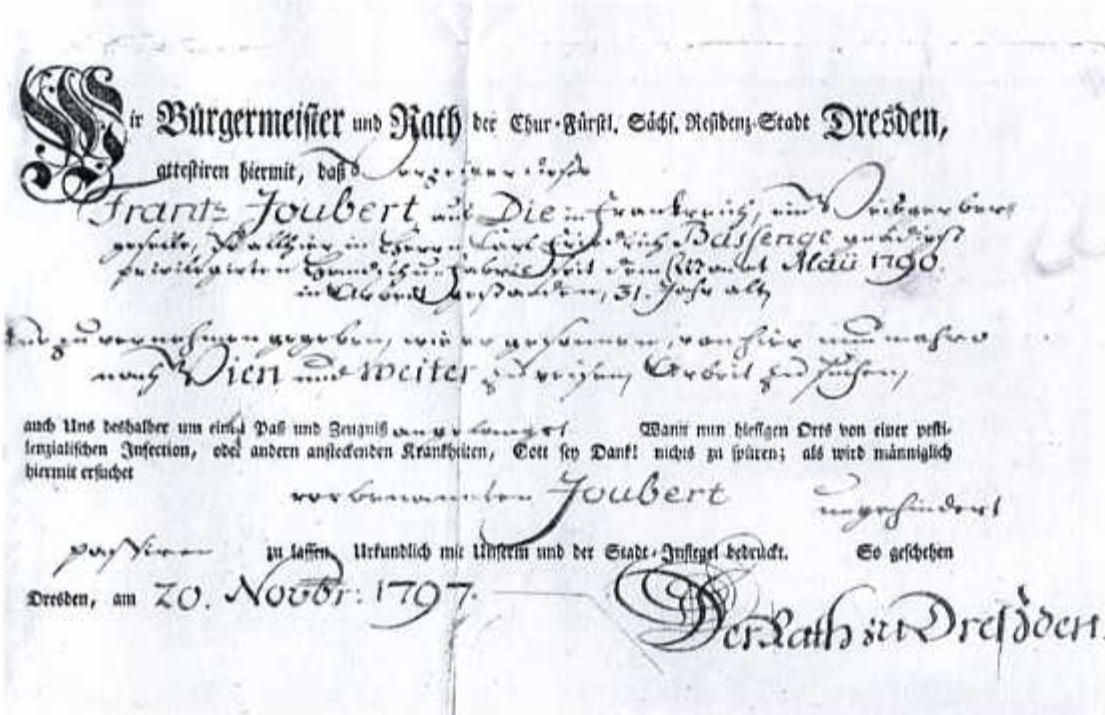 Wir Bürgermeister und Rath der Chur-Fürstl. Sächs. Residenz-Stadt Dresden,
attestiren hiermit, daß Vorzeiger dieses
Frantz Joubert aus Die in Franckreich, ein Weisgerber
geselle, Herrn Carl Friedrich Bassenge gnädigst
privilegirten Handschu Fabric seit dem Monat Maii 1790.
in Arbeit gestanden, 31. Jahr alt,
zu vernehmen gegeben, wie er gesonnen, von hier nunmehro
nach Wien und weiter zu reisen, Arbeit zu suchen,
auch Uns deshalber um einen Paß und Zeugniß angelanget Wann nun hiesigen Orts von einer pesti-
lenzialischen Infection, oder andern ansteckenden Krankheiten, Gott sey Dank! nichts zu spüren; als wird männiglich
hiermit ersuchet
vorbenannten Joubert ungehindert
passiren zu lassen. Urkundlich mit Unserm und der Stadt-Insiegel bedruckt. So geschehen
Dresden, am 20. Novbr: 1797.
Der Rath zu Dresden.